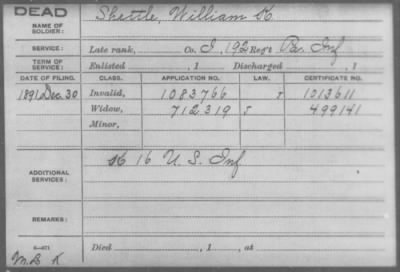 DEAD
NAME OF SOLDIER: Shettle, William H.
SERVICE: Late rank, Co. I, 192 Reg't Pa. Inf
TERM OF SERVICE: Enlisted , 1 Discharged , 1
DATE OF FILING. CLASS. APPLICATION NO. LAW. CERTIFICATE NO.
1891 Dec. 30 Invalid, 1083766 J 1013611
Widow, 712319 J 499141
Minor,
ADDITIONAL SERVICES: 16 U. S. Inf
REMARKS:
Died , 1 , at